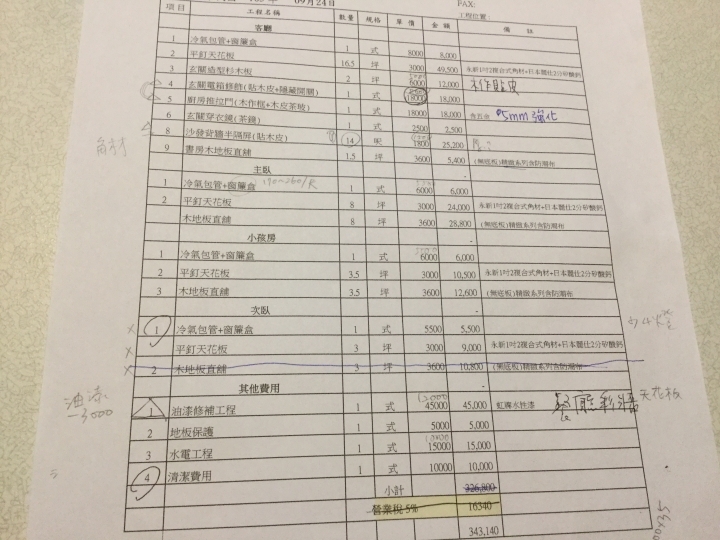 09月24日
FAX:
工程位置:
項目 工程名稱 數量 規格 單價 金額 備註
客廳
1 冷氣包管+窗簾盒 1 式 8000 8,000
2 平釘天花板 16.5 坪 3000 49,500 永新1吋2複合式角材+日本麗仕2分矽酸鈣
3 玄關造型杉木板 2 坪 6000 12,000 木作貼皮
4 玄關電箱修飾(貼木皮+隱藏開關) 1 式 18000 18,000
5 廚房推拉門(木作框+木皮茶玻) 1 式 18000 18,000 含五金 5mm強化
6 玄關穿衣鏡(茶鏡) 1 式 2500 2,500
8 沙發背牆半隔屏(貼木皮) 14 呎 1800 25,200
9 書房木地板直舖 1.5 坪 3600 5,400 (無底板)精緻系列含防潮布
角材
主臥
1 冷氣包管+窗簾盒 1 式 6000 6,000
2 平釘天花板 8 坪 3000 24,000 永新1吋2複合式角材+日本麗仕2分矽酸鈣
木地板直舖 8 坪 3600 28,800 (無底板)精緻系列含防潮布
小孩房
1 冷氣包管+窗簾盒 1 式 6000 6,000
2 平釘天花板 3.5 坪 3000 10,500 永新1吋2複合式角材+日本麗仕2分矽酸鈣
3 木地板直舖 3.5 坪 3600 12,600 (無底板)精緻系列含防潮布
次臥
1 冷氣包管+窗簾盒 1 式 5500 5,500
平釘天花板 3 坪 3000 9,000 永新1吋2複合式角材+日本麗仕2分矽酸鈣
2 木地板直舖 3 坪 3600 10,800 (無底板)精緻系列含防潮布
其他費用
油漆
-3000
1 油漆修補工程 1 式 45000 45,000 虹牌水性漆 天花板
2 地板保護 1 式 5000 5,000
3 水電工程 1 式 15000 15,000
4 清潔費用 1 式 10000 10,000
小計 326,800
營業稅5% 16340
343,140